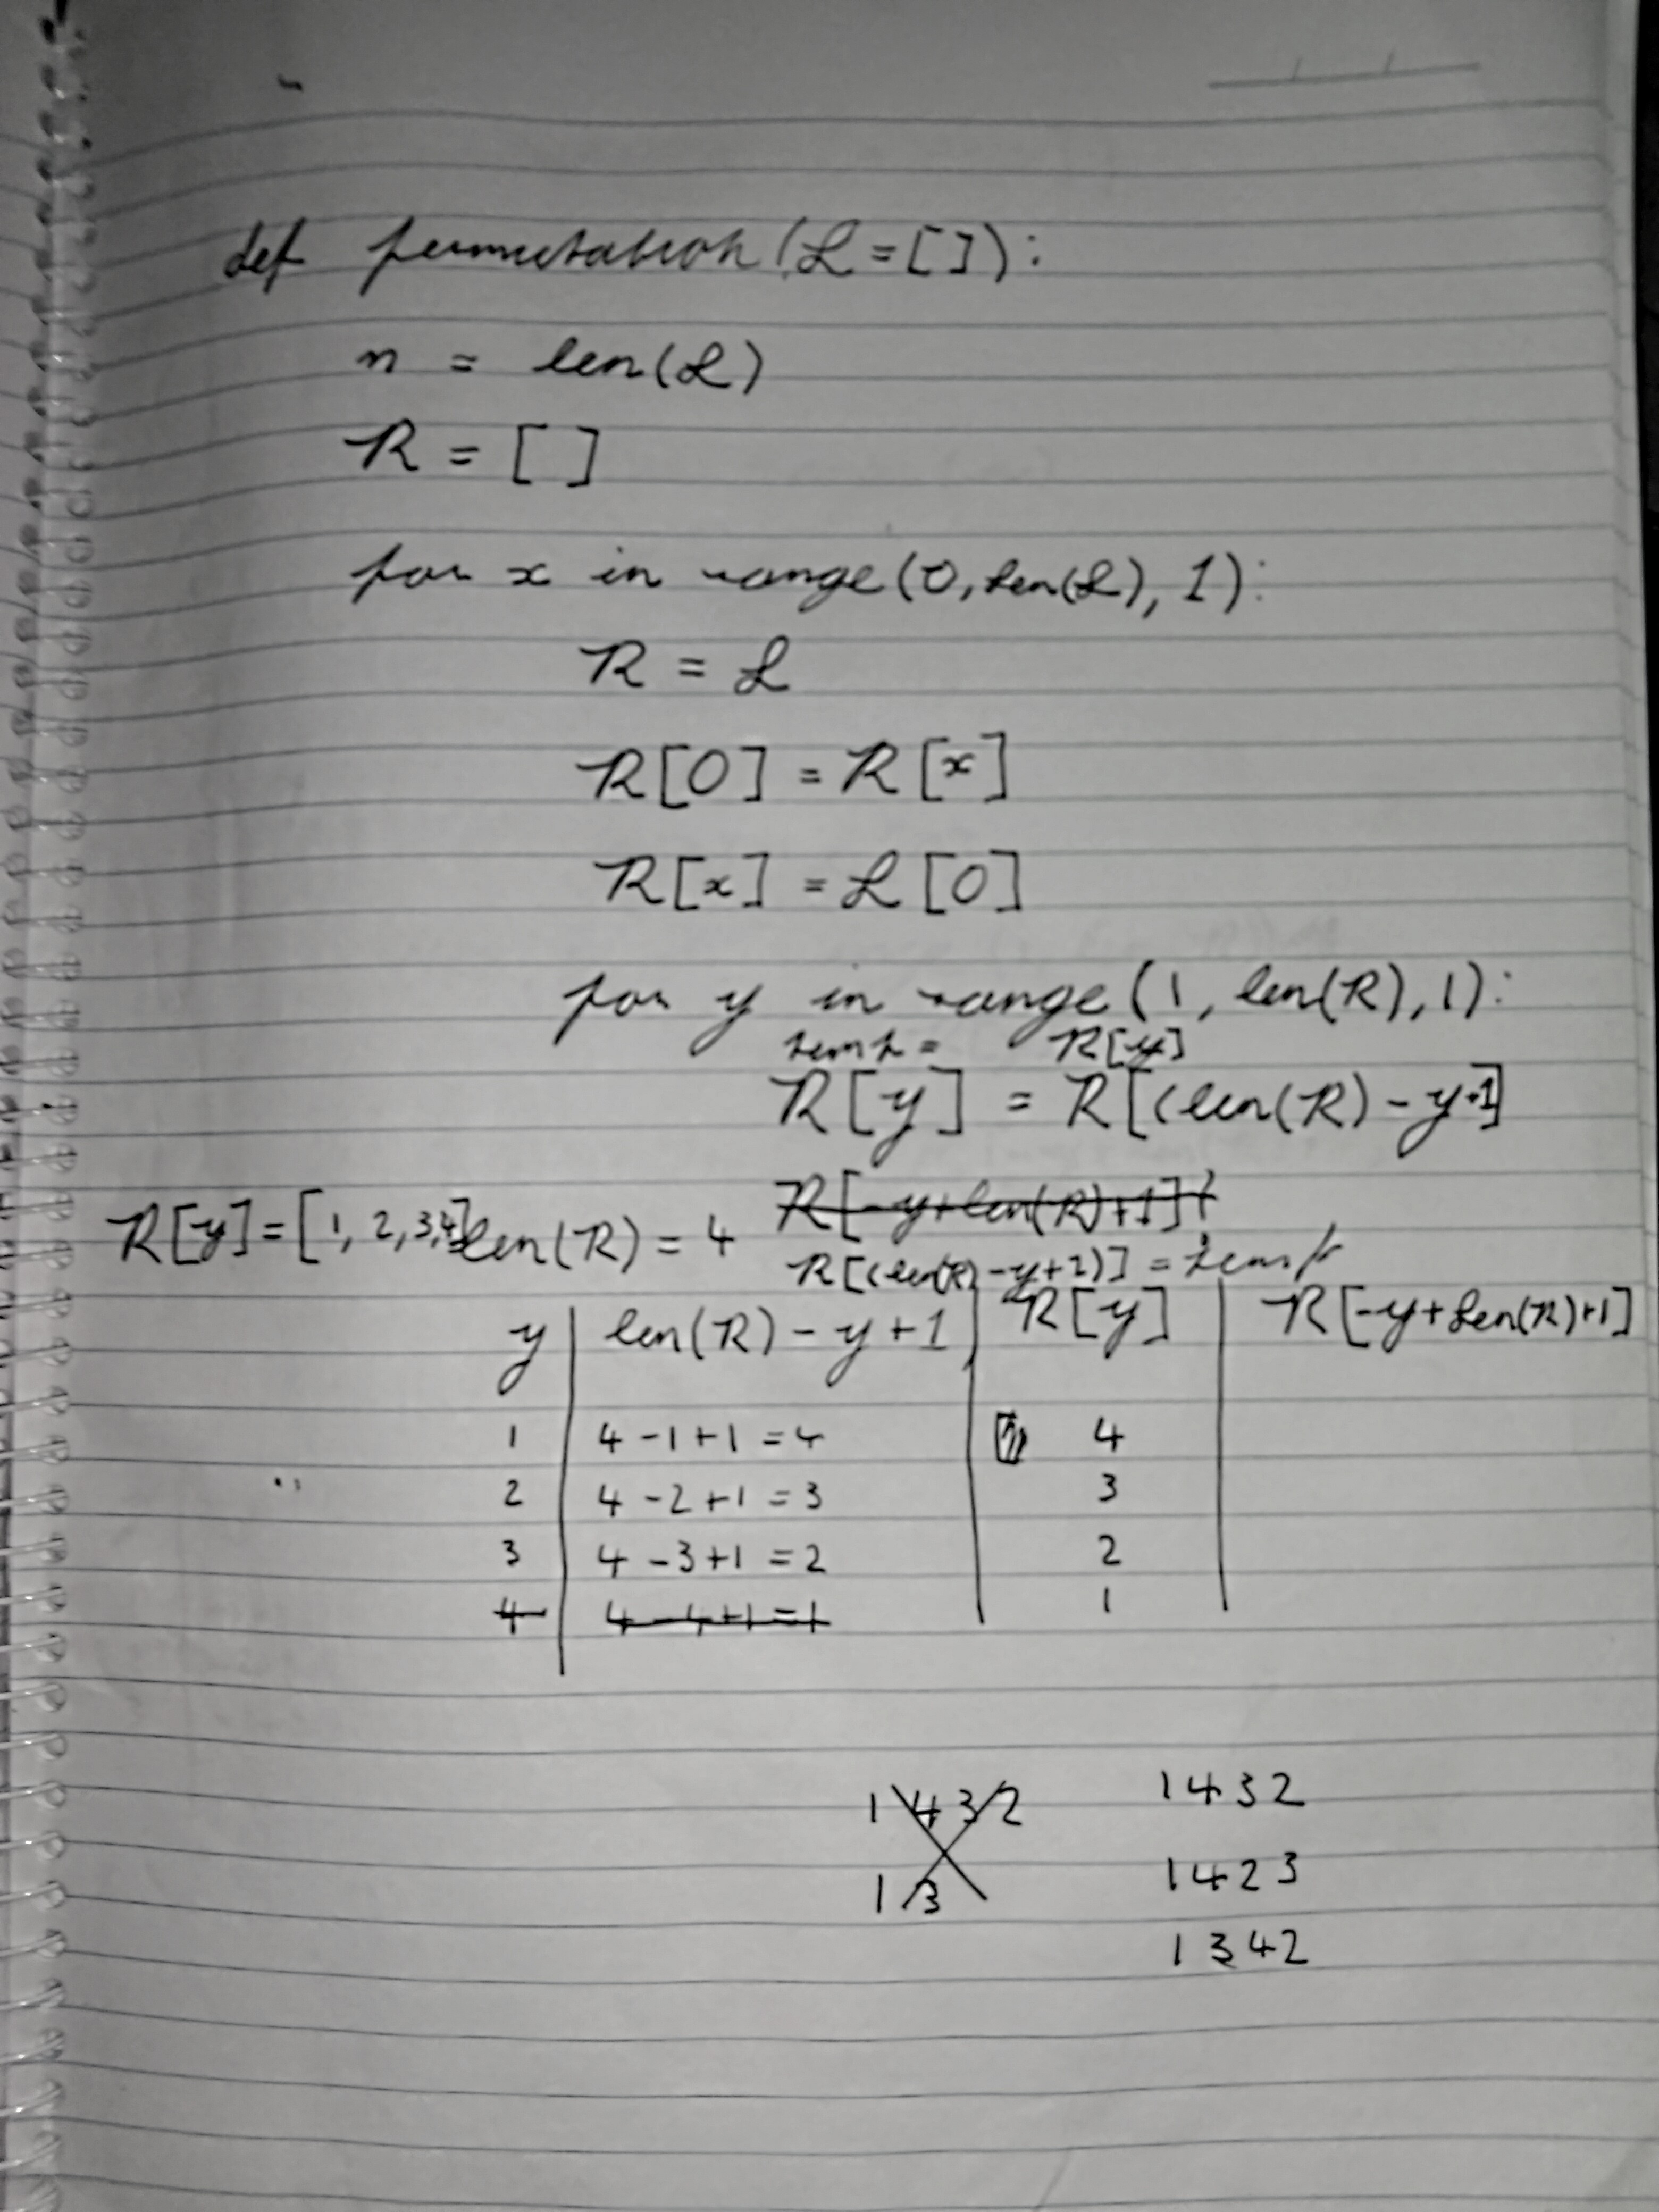 def permutation(L=[]):
n = len(L)
R = []
for x in range(0, len(L), 1):
R = L
R[0] = R[x]
R[x] = L[0]
for y in range(1, len(R), 1):
temp = R[y]
R[y] = R[(len(R) - y+1]
R[y] = [1, 2, 3, 4] len(R) = 4
R[(len(R) - y+1)] = temp
y | len(R) - y + 1 | R[y] | R[-y+len(R)+1]
1 | 4 - 1 + 1 = 4 | 4
2 | 4 - 2 + 1 = 3 | 3
3 | 4 - 3 + 1 = 2 | 2
4 | 4 - 4 + 1 = 1 | 1
1 4 3 2 1 4 3 2
1 3 1 4 2 3
1 3 4 2